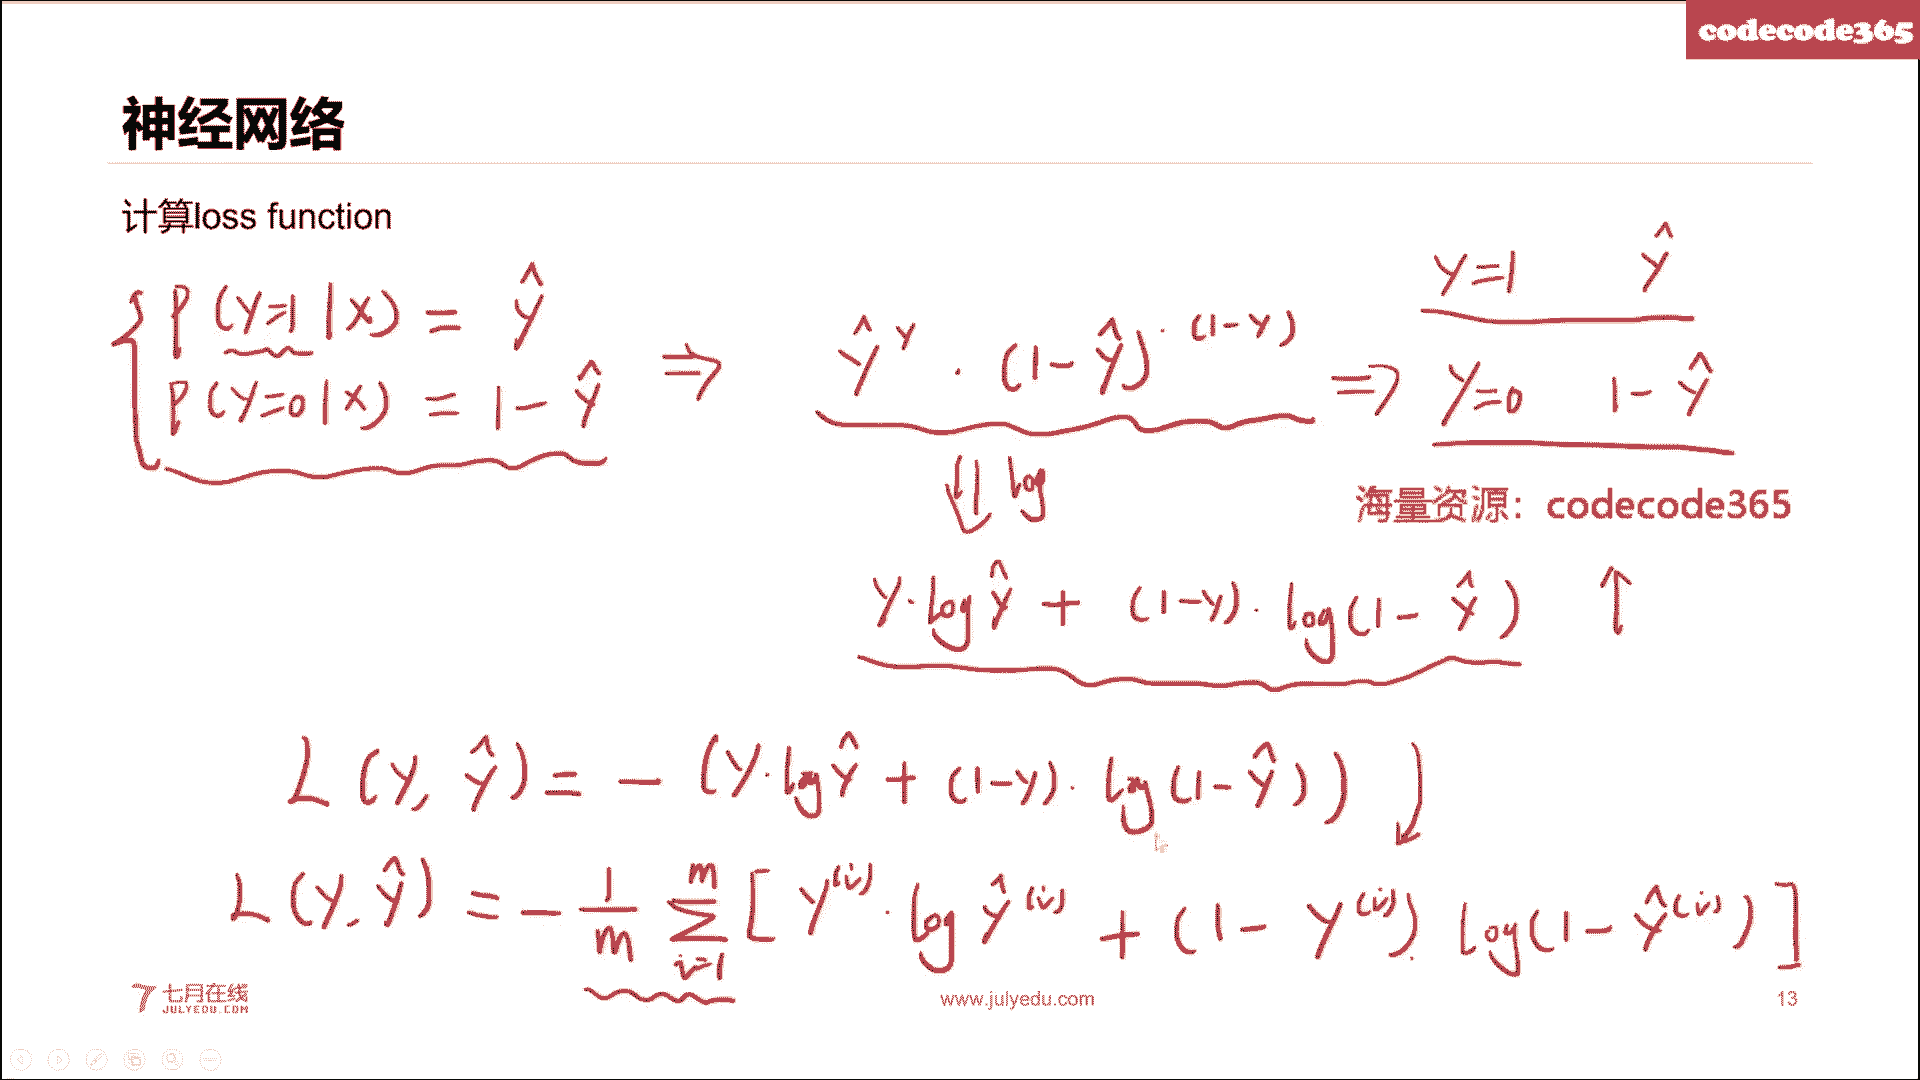 codecode365
神经网络
计算loss function
P(Y=1|X) = ŷ
P(Y=0|X) = 1-ŷ
⇒
ŷ^y · (1-ŷ)^(1-y)
⇒
y=1 ŷ
y=0 1-ŷ
⇓ log
海量资源：codecode365
y·logŷ + (1-y)·log(1-ŷ) ↑
L(y, ŷ) = -(y·logŷ + (1-y)·log(1-ŷ))
L(y, ŷ) = -1/m Σ_{i=1}^{m} [y^(i)·logŷ^(i) + (1-y^(i))·log(1-ŷ^(i))]
七月在线
JULYEDU.COM
www.julyedu.com
13